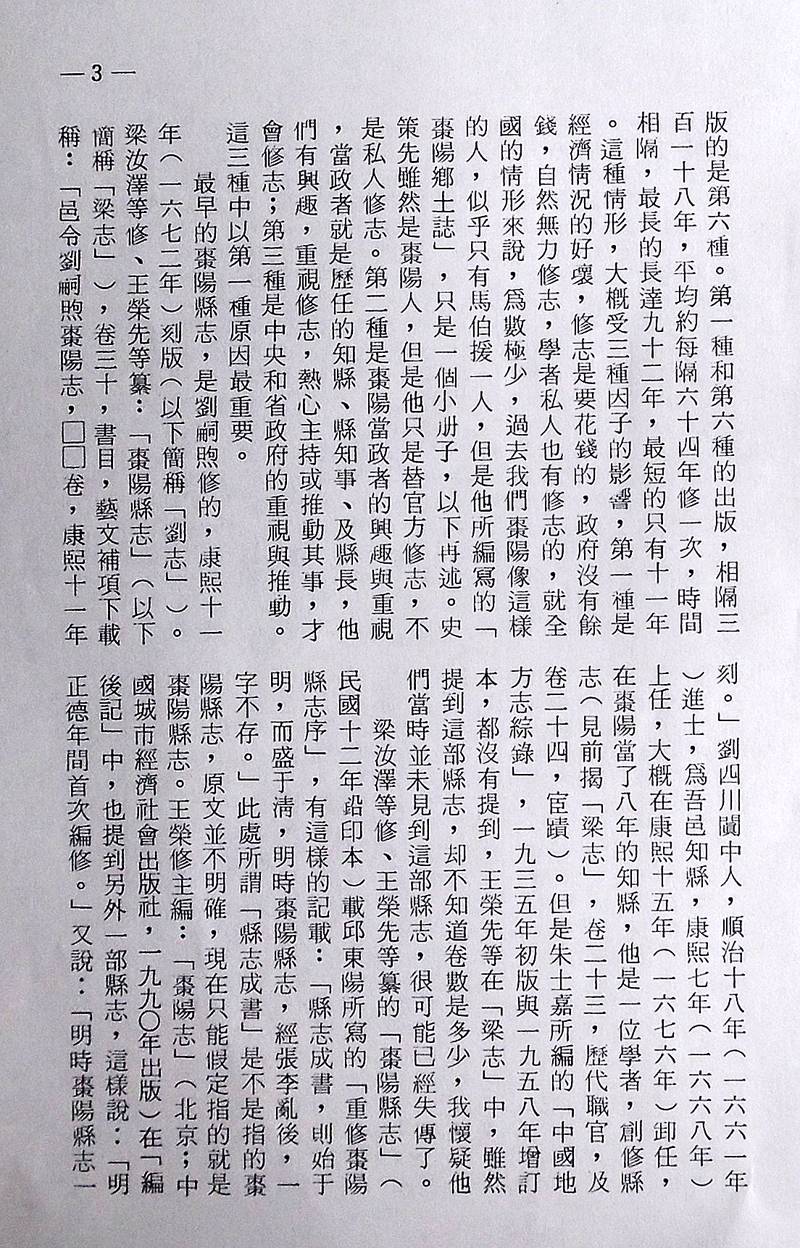 — 3 —
版的是第六種。第一種和第六種的出版，相隔三
百一十八年，平均約每隔六十四年修一次，時間
相隔，最長的長達九十二年，最短的只有十一年
。這種情形，大概受三種因子的影響，第一種是
經濟情況的好壞，修志是要花錢的，政府沒有餘
錢，自然無力修志，學者私人也有修志的，就全
國的情形來說，爲數極少，過去我們棗陽像這樣
的人，似乎只有馬伯援一人，但是他所編寫的「
棗陽鄉土誌」，只是一個小册子，以下再述。史
策先雖然是棗陽人，但是他只是替官方修志，不
是私人修志。第二種是棗陽當政者的興趣與重視
，當政者就是歷任的知縣、縣知事、及縣長，他
們有興趣，重視修志，熱心主持或推動其事，才
會修志；第三種是中央和省政府的重視與推動。
這三種中以第一種原因最重要。
最早的棗陽縣志，是劉嗣煦修的，康熙十一
年（一六七二年）刻版（以下簡稱「劉志」）。
梁汝澤等修、王榮先等纂：「棗陽縣志」（以下
簡稱「梁志」），卷三十，書目，藝文補項下載
稱：「邑令劉嗣煦棗陽志，□□卷，康熙十一年
刻。」劉四川閬中人，順治十八年（一六六一年
）進士，爲吾邑知縣，康熙七年（一六六八年）
上任，大概在康熙十五年（一六七六年）卸任，
在棗陽當了八年的知縣，他是一位學者，創修縣
志（見前揭「梁志」，卷二十三，歷代職官，及
卷二十四，宦蹟）。但是朱士嘉所編的「中國地
方志綜錄」，一九三五年初版與一九五八年增訂
本，都沒有提到，王榮先等在「梁志」中，雖然
提到這部縣志，却不知道卷數是多少，我懷疑他
們當時並未見到這部縣志，很可能已經失傳了。
梁汝澤等修、王榮先等纂的「棗陽縣志」（
民國十二年鉛印本）載邱東陽所寫的「重修棗陽
縣志序」，有這樣的記載：「縣志成書，則始于
明，而盛于淸，明時棗陽縣志，經張李亂後，一
字不存。」此處所謂「縣志成書」是不是指的棗
陽縣志，原文並不明確，現在只能假定指的就是
棗陽縣志。王榮修主編：「棗陽志」（北京；中
國城市經濟社會出版社，一九九〇年出版）在「編
後記」中，也提到另外一部縣志，這樣說：「明
正德年間首次編修。」又說：「明時棗陽縣志一